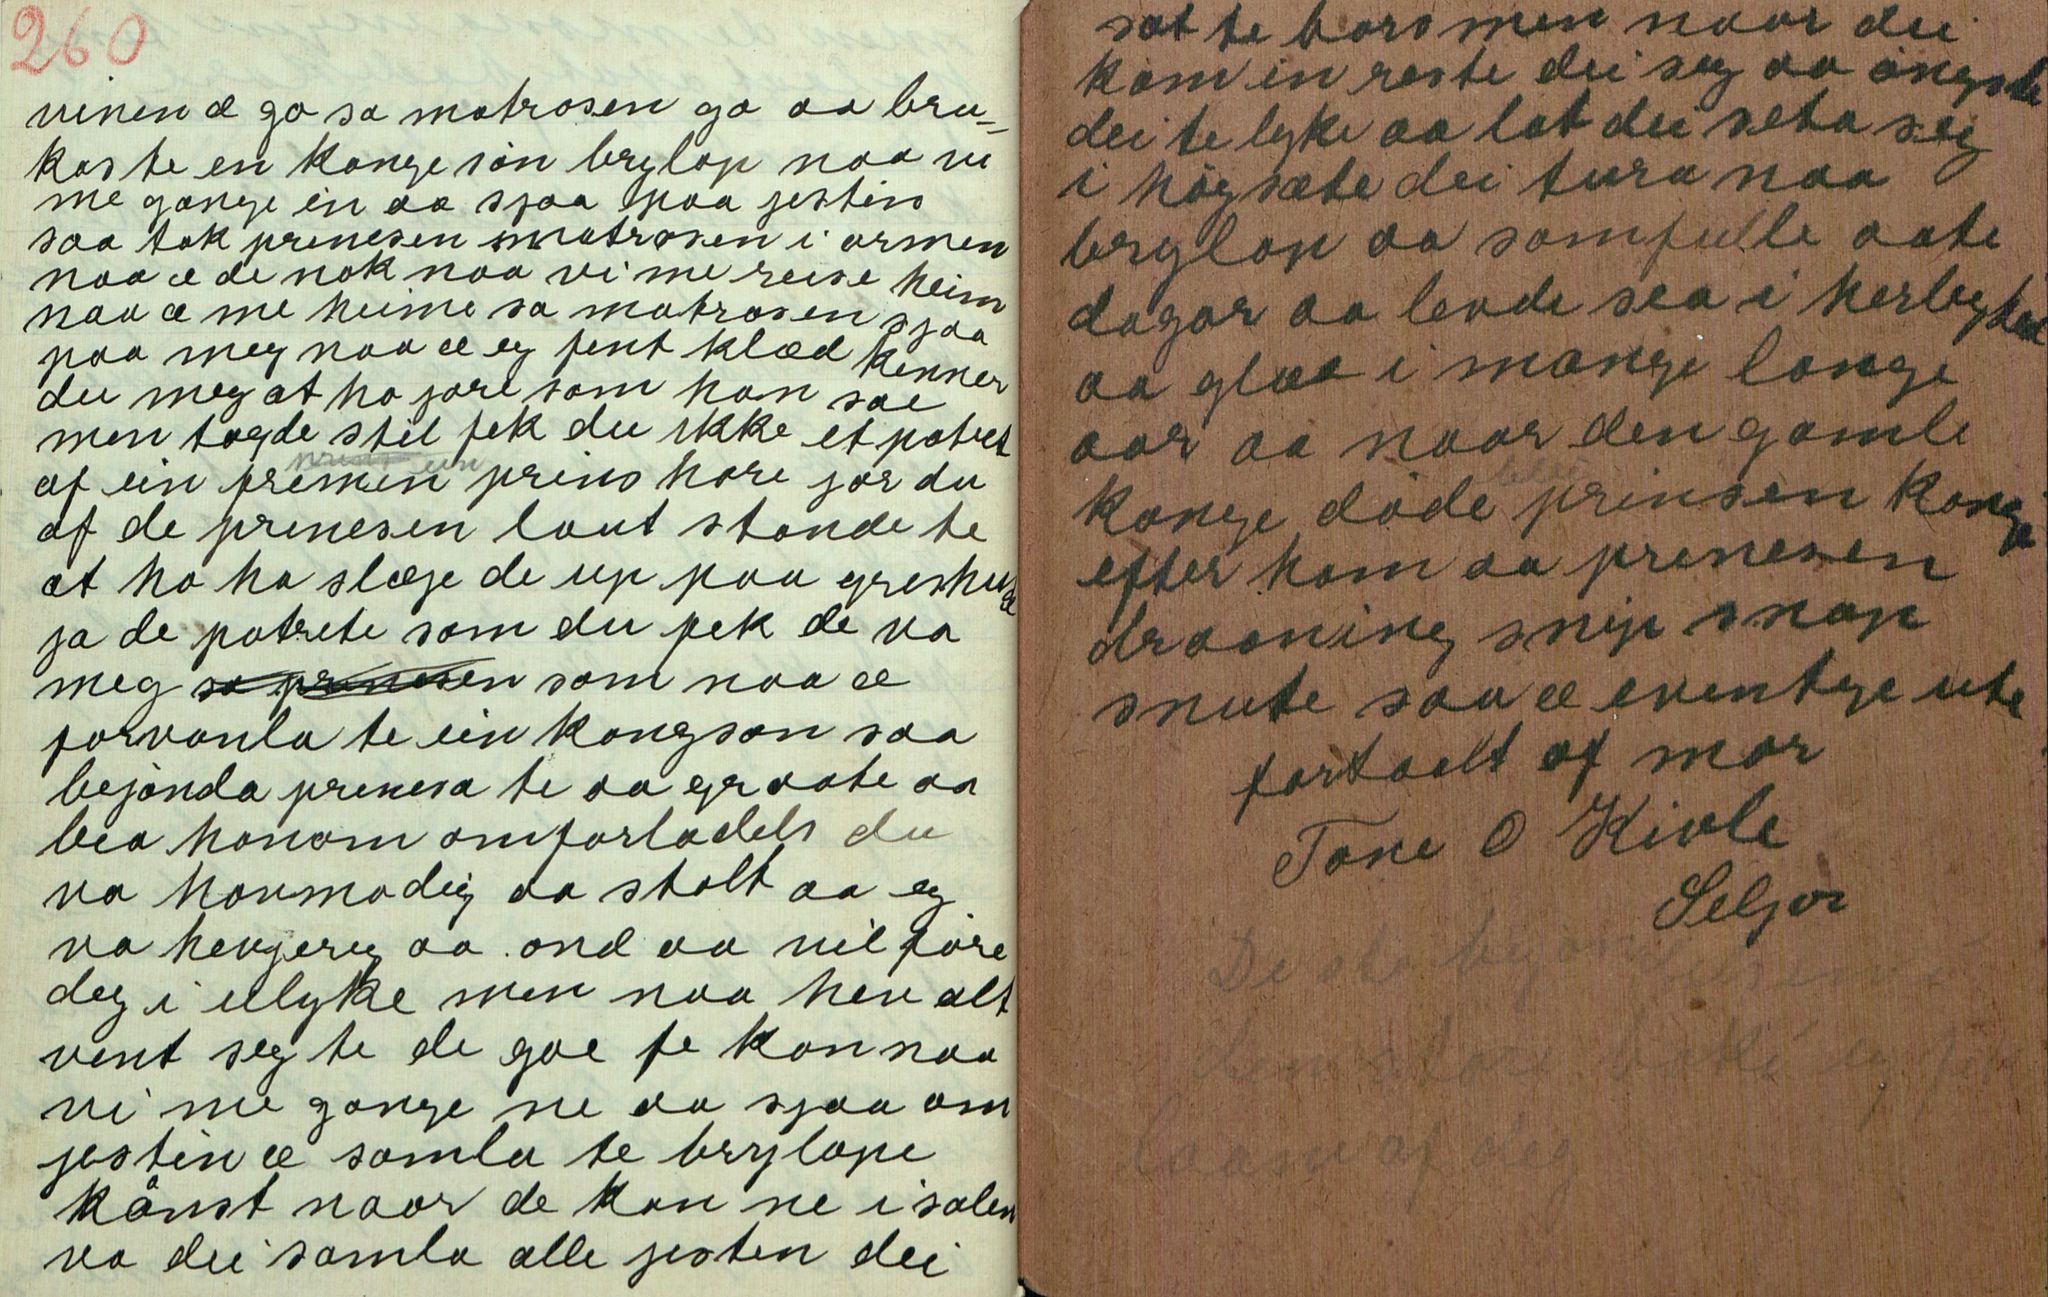 260
vinen æ go sa matrosen go aa bru-
kaste en kongesøn brylop naa vi
me gange in aa sjaa paa jestins
saa tok prinesen matrosen i armen
naa æ de nok naa vi me reise heim
naa æ me heime sa matrosen sjaa
paa meg naa æ eg fent klæd kenner
du meg at ho jore som han sae
men tagde stil fek du ikke et potret
af ein fremen prins hore jor du
af de prinesen laut stande te
at ho ha slæge de up paa greshuse
ja de potrete som du fek de va
meg sa prinesen som naa æ
forvanla te ein kongson saa
bejønda prinesa te aa graate aa
bea honom om forladels du
va hovmodig aa stolt aa eg
va hevgereg aa ond aa vil føre
deg i ulyke men naa hev alt
vent seg te de goe fe kon naa
vi me gange ne aa sjaa om
jestin æ samla te brylope
kånst naar de kan ne i salen
va dei samla alle jesten dei
sat te bors men naar dei
kom in reste dei seg aa øngste
dei te lyke aa lot dei seta seg
i høgsæte dei tura naa
brylop aa samfulle aate
dagar aa levde sea i herlighed
aa glæe i mange lange
aar aa naar den gamle
konge døde blei prinsen konge
efter ham aa prinesen
draaning snip snap
snute saa æ eventye ute
fortaelt af mor
Tone O Kivle
Seljor
De sto
den store
af deg